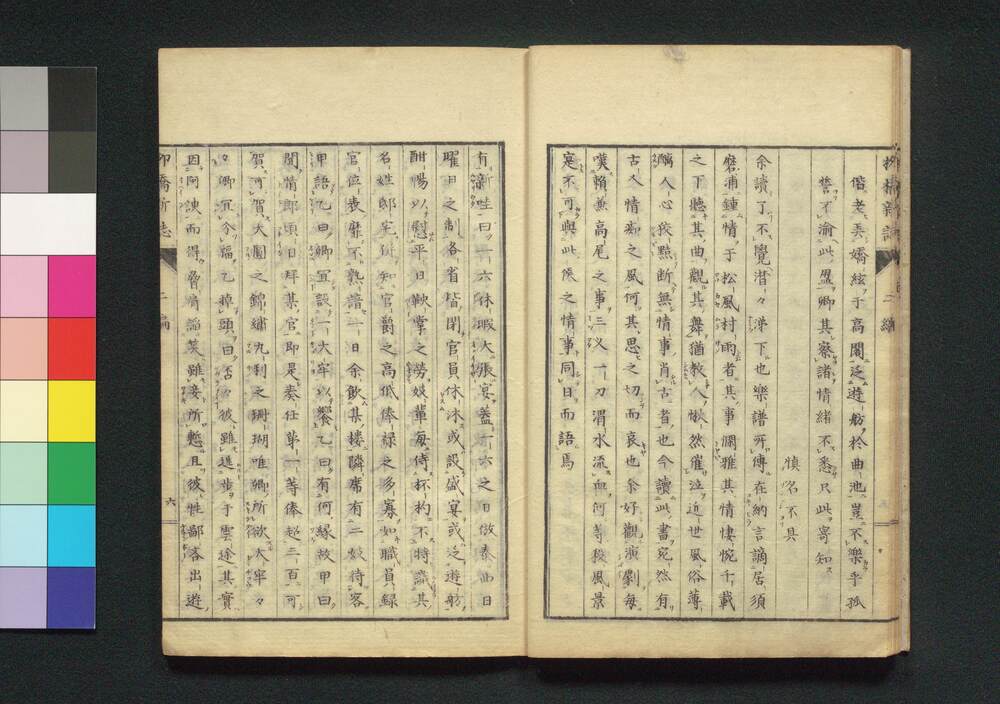 偕老弄嬌絃于高閣泛遊舫於曲池豈不樂乎孤
誓不渝此盈卿其察諸情緒不悉只此寄知
慎名不具
余讀了不覺潸々涕下也樂譜所傳在納言謫居須
磨浦鍾情于松風村雨者其事儷雅其情悽惋千載
之下聽其曲觀其舞猶教人愀然催泣近世風俗薄
醨人心狡黠斷無情事肖古者也今讀此書宛然有
古人情癡之風何其思之切而哀也余好觀演劇每
嘆賴兼高尾之事三叉一刀渭水流血何等殺風景
寔不可與此侯之情事同日而語焉
有新哇曰一六休暇大張宴蓋一六之日倣泰西日
曜日之制各省皆閉官員休沐或設盛宴或泛遊舫
酣暢以慰平日鞅掌之勞妓輩每侍杯杓不特識其
名姓邸宅併知官爵之高低俸祿之多寡如職員錄
官位表靡不熟諳一日余飲某樓隣席有二妓待客
甲語乙曰卿宜設一大牢以饗乙曰有何緣故甲曰
聞情郎頃日拜某官即是奏任第一等俸超三百可
賀可賀大園之錦繡九利之珊瑚唯卿所欲大牢々
々卿宜今福乙掉頭曰否々彼雖進步于雲途其實
因阿諛而得脅肩諂笑雖妾所慙且彼性鄙吝出遊
柳橋新誌 二編 六